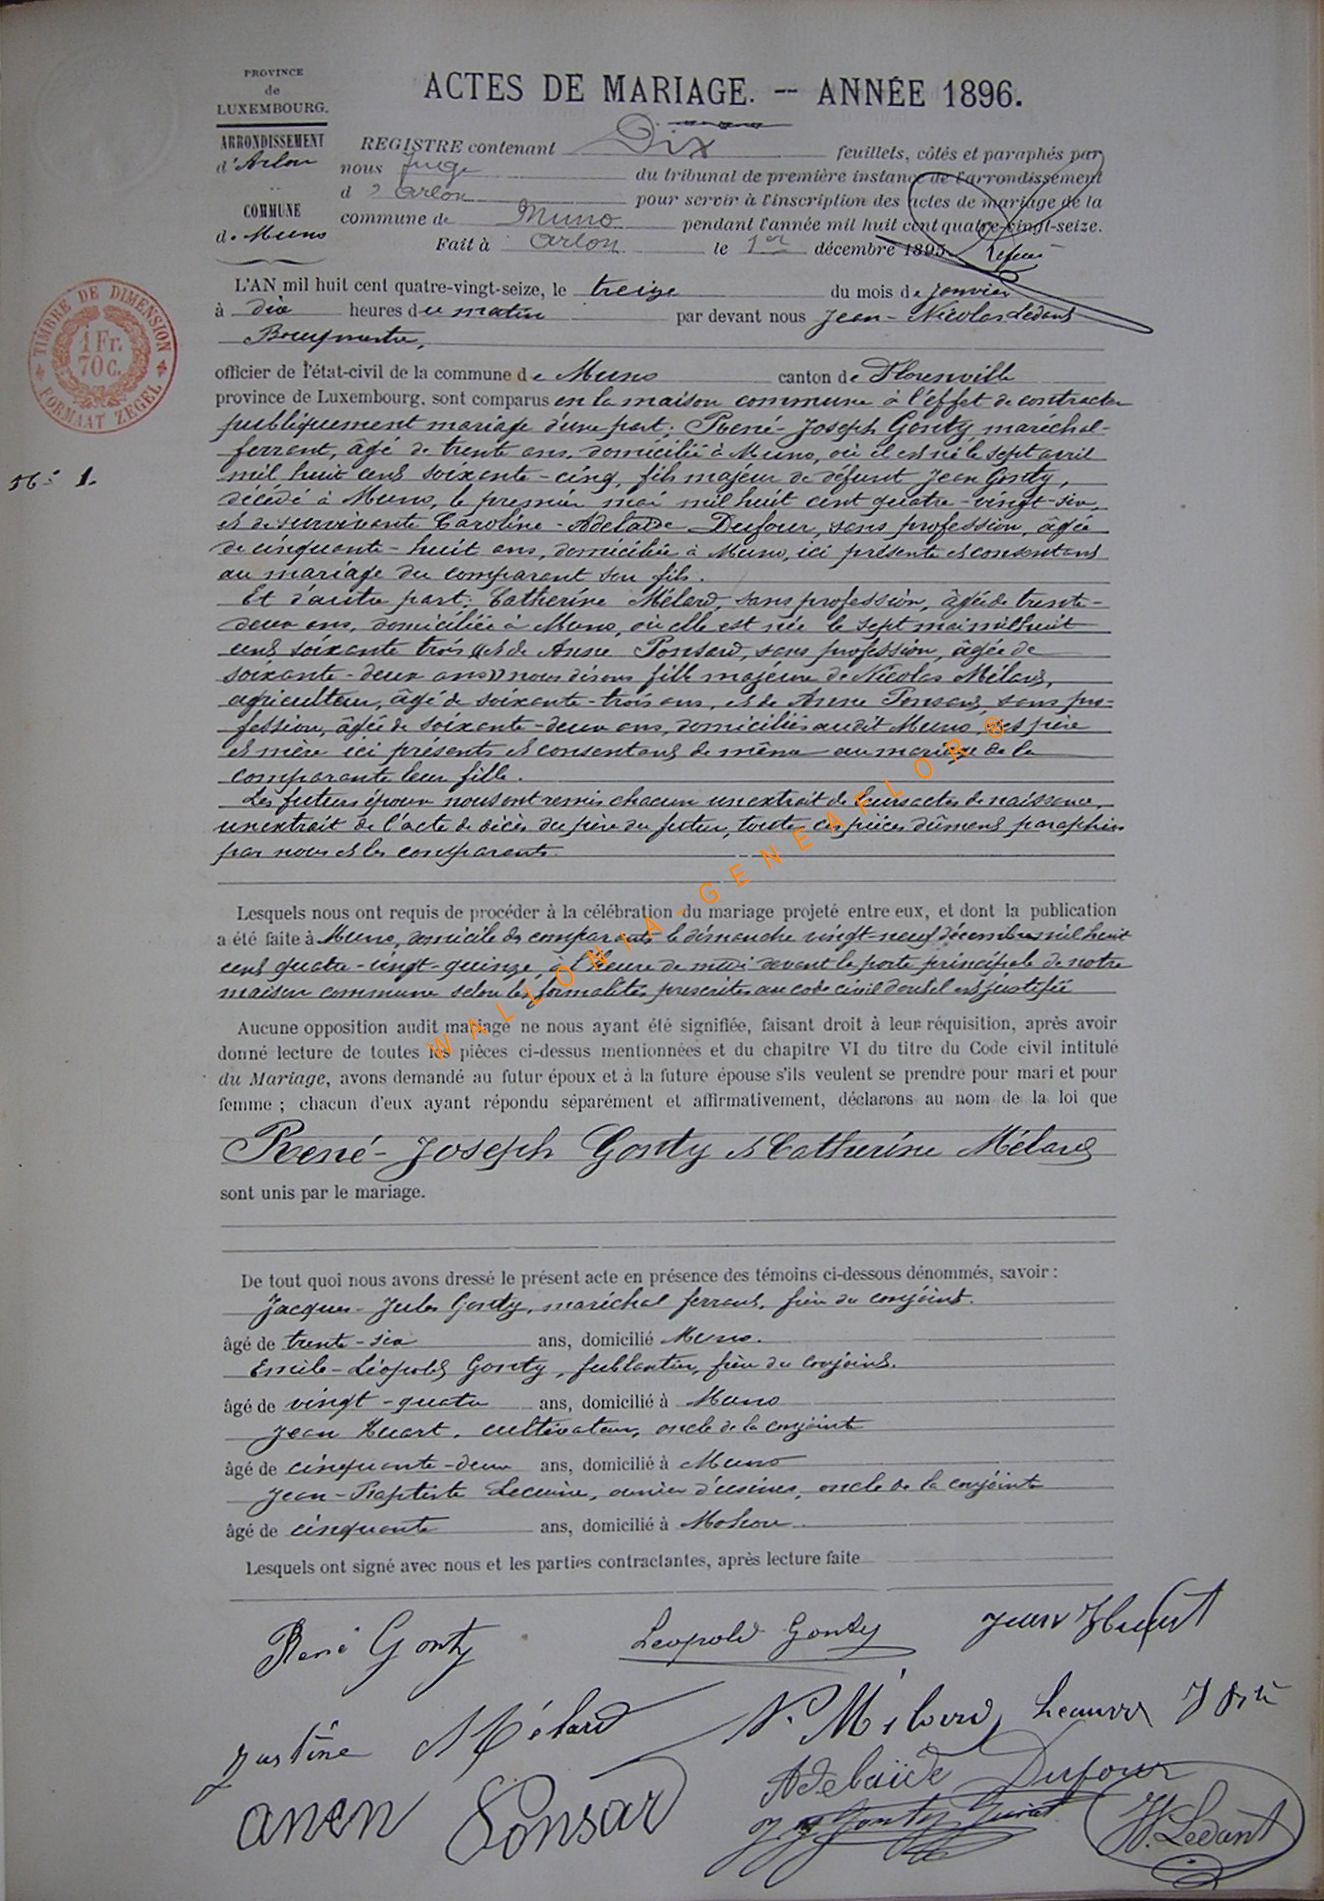 PROVINCE
de
LUXEMBOURG.
ARRONDISSEMENT
d'Arlon
COMMUNE
de Muno
ACTES DE MARIAGE. -- ANNÉE 1896.
REGISTRE contenant Dix feuillets, côtés et paraphés par
nous Juge du tribunal de première instance de l'arrondissement
d'Arlon pour servir à l'inscription des actes de mariage de la
commune de Muno pendant l'année mil huit cent quatre-vingt-seize.
Fait à Arlon le 1er décembre 1895.
TIMBRE DE DIMENSION
1 Fr.
70 c.
FORMAAT ZEGEL
N° 1.
L'AN mil huit cent quatre-vingt-seize, le treize du mois de janvier
à dix heures du matin par devant nous Jean-Nicolas Ledant
Bourgmestre,
officier de l'état-civil de la commune de Muno canton de Florenville
province de Luxembourg, sont comparus en la maison commune à l'effet de contracter
publiquement mariage d'une part; René-Joseph Gonty, maréchal-
ferrant, âgé de trente ans, domicilié à Muno, où il est né le sept avril
mil huit cent soixante-cinq, fils majeur de défunt Jean Gonty,
décédé à Muno, le premier mai mil huit cent quatre-vingt-six,
et de survivante Caroline-Adelaïde Dufour, sans profession, âgée
de cinquante-huit ans, domiciliée à Muno, ici présente et consentant
au mariage du comparant son fils.
Et d'autre part: Catherine Mélard, sans profession, âgée de trente-
deux ans, domiciliée à Muno, où elle est née le sept mai mil huit
cent soixante trois ((et de Anne Ponsard, sans profession, âgée de
soixante-deux ans)) nous disons fille majeure de Nicolas Mélard,
agriculteur, âgé de soixante-trois ans, et de Anne Ponsard, sans pro-
fession, âgée de soixante-deux ans, domiciliés audit Muno, ses père
et mère ici présents et consentant de même au mariage de la
comparante leur fille.
Les futurs époux nous ont remis chacun un extrait de leurs actes de naissance,
un extrait de l'acte de décès du père du futur, toutes ces pièces dûment paraphées
par nous et les comparants.
Lesquels nous ont requis de procéder à la célébration du mariage projeté entre eux, et dont la publication
a été faite à Muno, domicile des comparants le dimanche vingt-neuf décembre mil huit
cent quatre-vingt-quinze, à l'heure de midi devant la porte principale de notre
maison commune selon les formalités prescrites au code civil dont il est justifié
Aucune opposition audit mariage ne nous ayant été signifiée, faisant droit à leur réquisition, après avoir
donné lecture de toutes les pièces ci-dessus mentionnées et du chapitre VI du titre du Code civil intitulé
du Mariage, avons demandé au futur époux et à la future épouse s'ils veulent se prendre pour mari et pour
femme ; chacun d'eux ayant répondu séparément et affirmativement, déclarons au nom de la loi que
René-Joseph Gonty et Catherine Mélard
sont unis par le mariage.
De tout quoi nous avons dressé le présent acte en présence des témoins ci-dessous dénommés, savoir :
Jacques-Jules Gonty, maréchal ferrant, frère du conjoint.
âgé de trente-six ans, domicilié Muno.
Emile-Léopold Gonty, ferblantier, frère du conjoint.
âgé de vingt-quatre ans, domicilié à Muno
Jean Huart, cultivateur, oncle de la conjointe
âgé de cinquante-deux ans, domicilié à Muno
Jean-Baptiste ouvrier d'usines, oncle de la conjointe
âgé de cinquante ans, domicilié à Mohon
Lesquels ont signé avec nous et les parties contractantes, après lecture faite
René Gonty Léopold Gonty Jean Huart
Justine Mélard N. Mélard
anen Ponsard Adelaïde Dufour
Gonty JN. Ledant
WALLONIA-GENEAFLOR ®